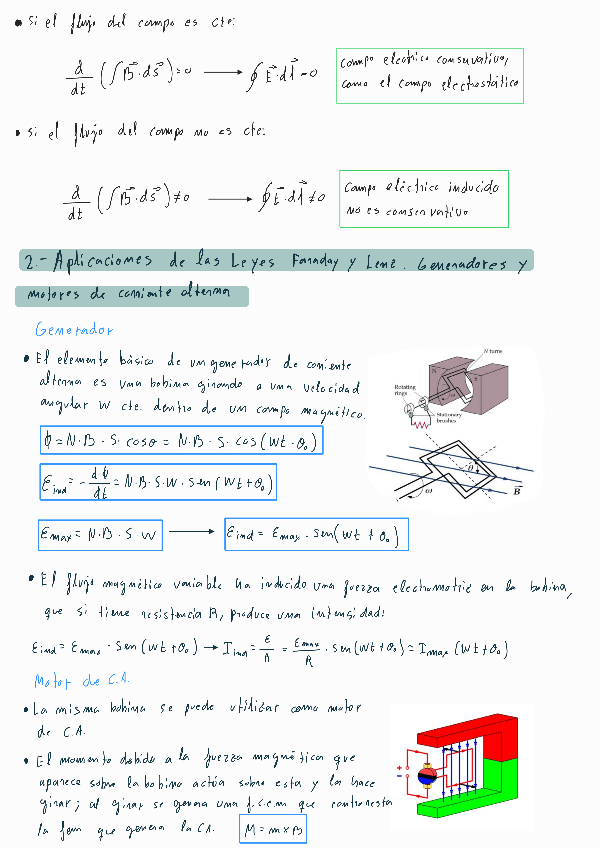 • Si el flujo del campo es cte:
d/dt (∫B⃗·ds⃗)=0 → ∮E⃗·dl⃗=0
Campo electrico conservativo,
como el campo electrostático
• Si el flujo del campo no es cte:
d/dt (∫B⃗·ds⃗)≠0 → ∮E⃗·dl⃗≠0
Campo eléctrico inducido
no es conservativo
2.- Aplicaciones de las Leyes Faraday y Lenz. Generadores y
motores de corriente alterna
Generador
• El elemento básico de un generador de corriente
alterna es una bobina girando a una velocidad
angular w cte. dentro de un campo magnético.
ϕ=N·B·S·cosθ = N·B·S·cos(Wt·θ₀)
Ɛind=-dϕ/dt=N·B·S·W·sen(Wt+θ₀)
Ɛmax=N·B·S·W → Ɛind=Ɛmax·sen(Wt+θ₀)
N turns
Rotating
rings
Stationary
brushes
N
S
θ
ω
B⃗
• El flujo magnético variable ha inducido una fuerza electromotriz en la bobina,
que si tiene resistencia R, produce una intensidad:
Ɛind=Ɛmax·sen(Wt+θ₀) → Iind=Ɛ/R=Ɛmax/R·sen(Wt+θ₀)=Imax(Wt+θ₀)
Motor de C.A.
• La misma bobina se puede utilizar como motor
de C.A.
• El momento debido a la fuerza magnética que
aparece sobre la bobina actúa sobre esta y la hace
girar; al girar se genera una f.c.e.m que contrarresta
la fem que genera la CA.
M=m×B
+
-